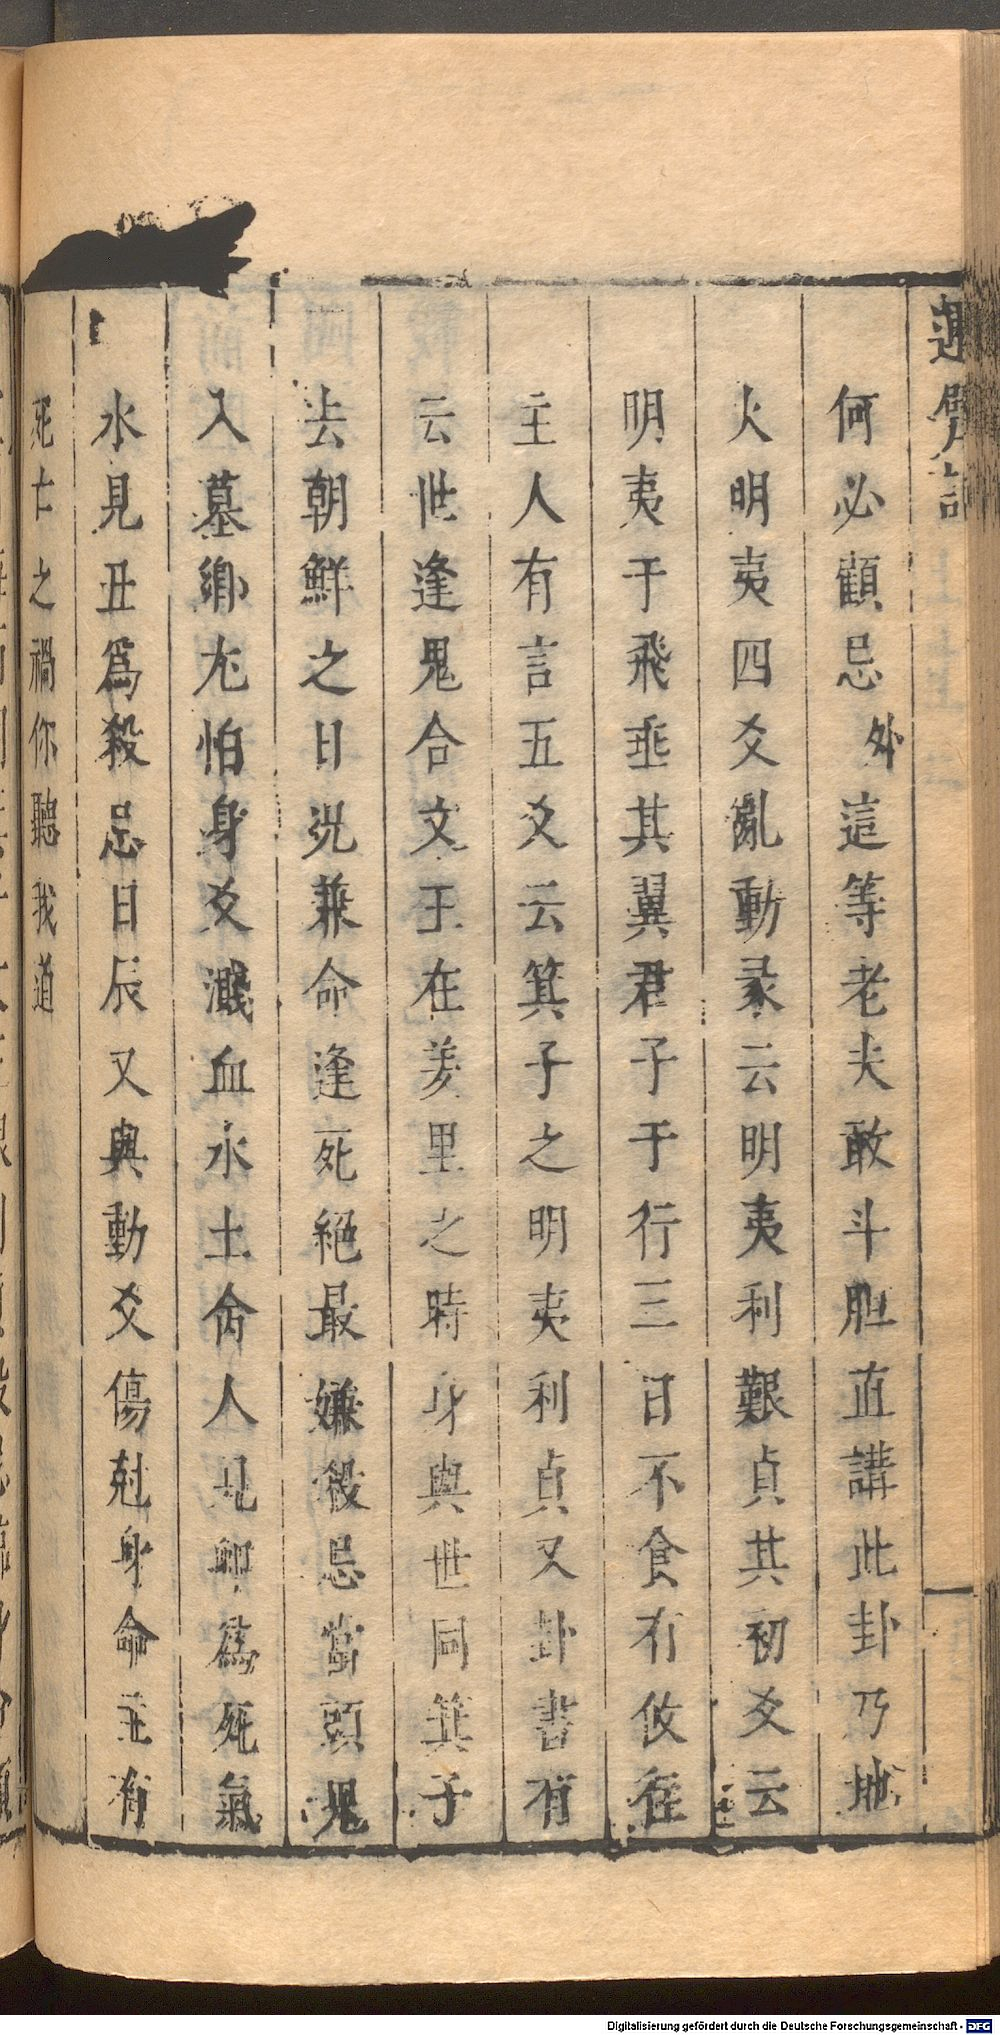 何必顧忌外這等老夫敢斗胆直講此卦乃地
火明夷四爻亂動彖云明夷利艱貞其初爻云
明夷于飛垂其翼君子于行三日不食有攸往
主人有言五爻云箕子之明夷利貞又卦書有
云世逢鬼合文王在羑里之時身與世同箕子
去朝鮮之日況兼命逢死絕最嫌殺忌當頭鬼
入墓鄉尤怕身爻濺血水土命人見卯為死氣
水見丑爲殺忌日辰又與動爻傷尅身命主有
死亡之禍你聽我道
Digitalisierung gefördert durch die Deutsche Forschungsgemeinschaft - DFG